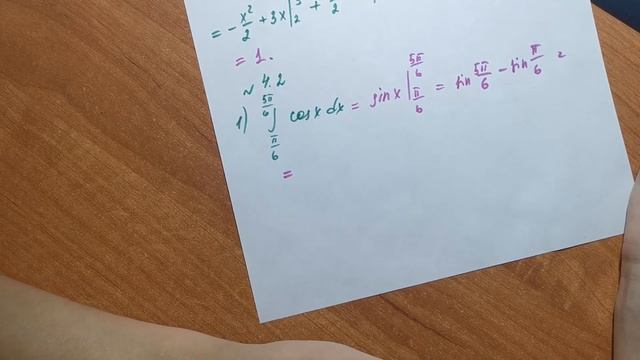 = - x²/2 + 3x | + /2
= 1.
~ 4.2
1) ∫_{π/6}^{5π/6} cosx dx = sinx |_{π/6}^{5π/6} = sin 5π/6 - sin π/6 =
=